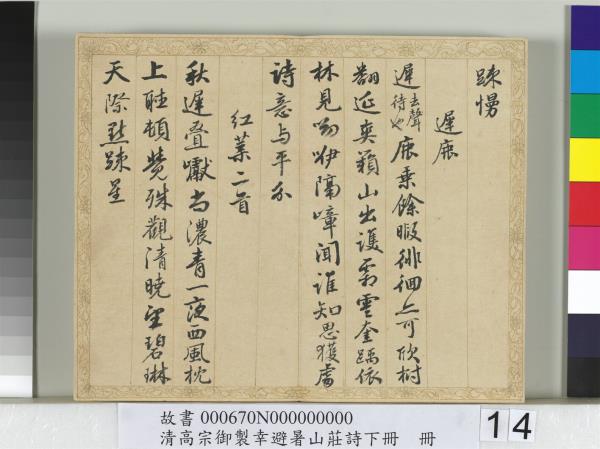 踈慵
遲鹿
遲去聲待也鹿乗餘暇徘徊亦可欣樹
翻延爽籟山出護霜雲奎踽依
林見呦呦隔嶂聞誰知思獲處
詩意与平分
紅葉二首
秋遲疊巘尚濃青一夜西風枕
上聽頓覺殊觀清曉望碧琳
天際點踈星
故書 000670N000000000
清高宗御製幸避暑山莊詩下冊 冊
14